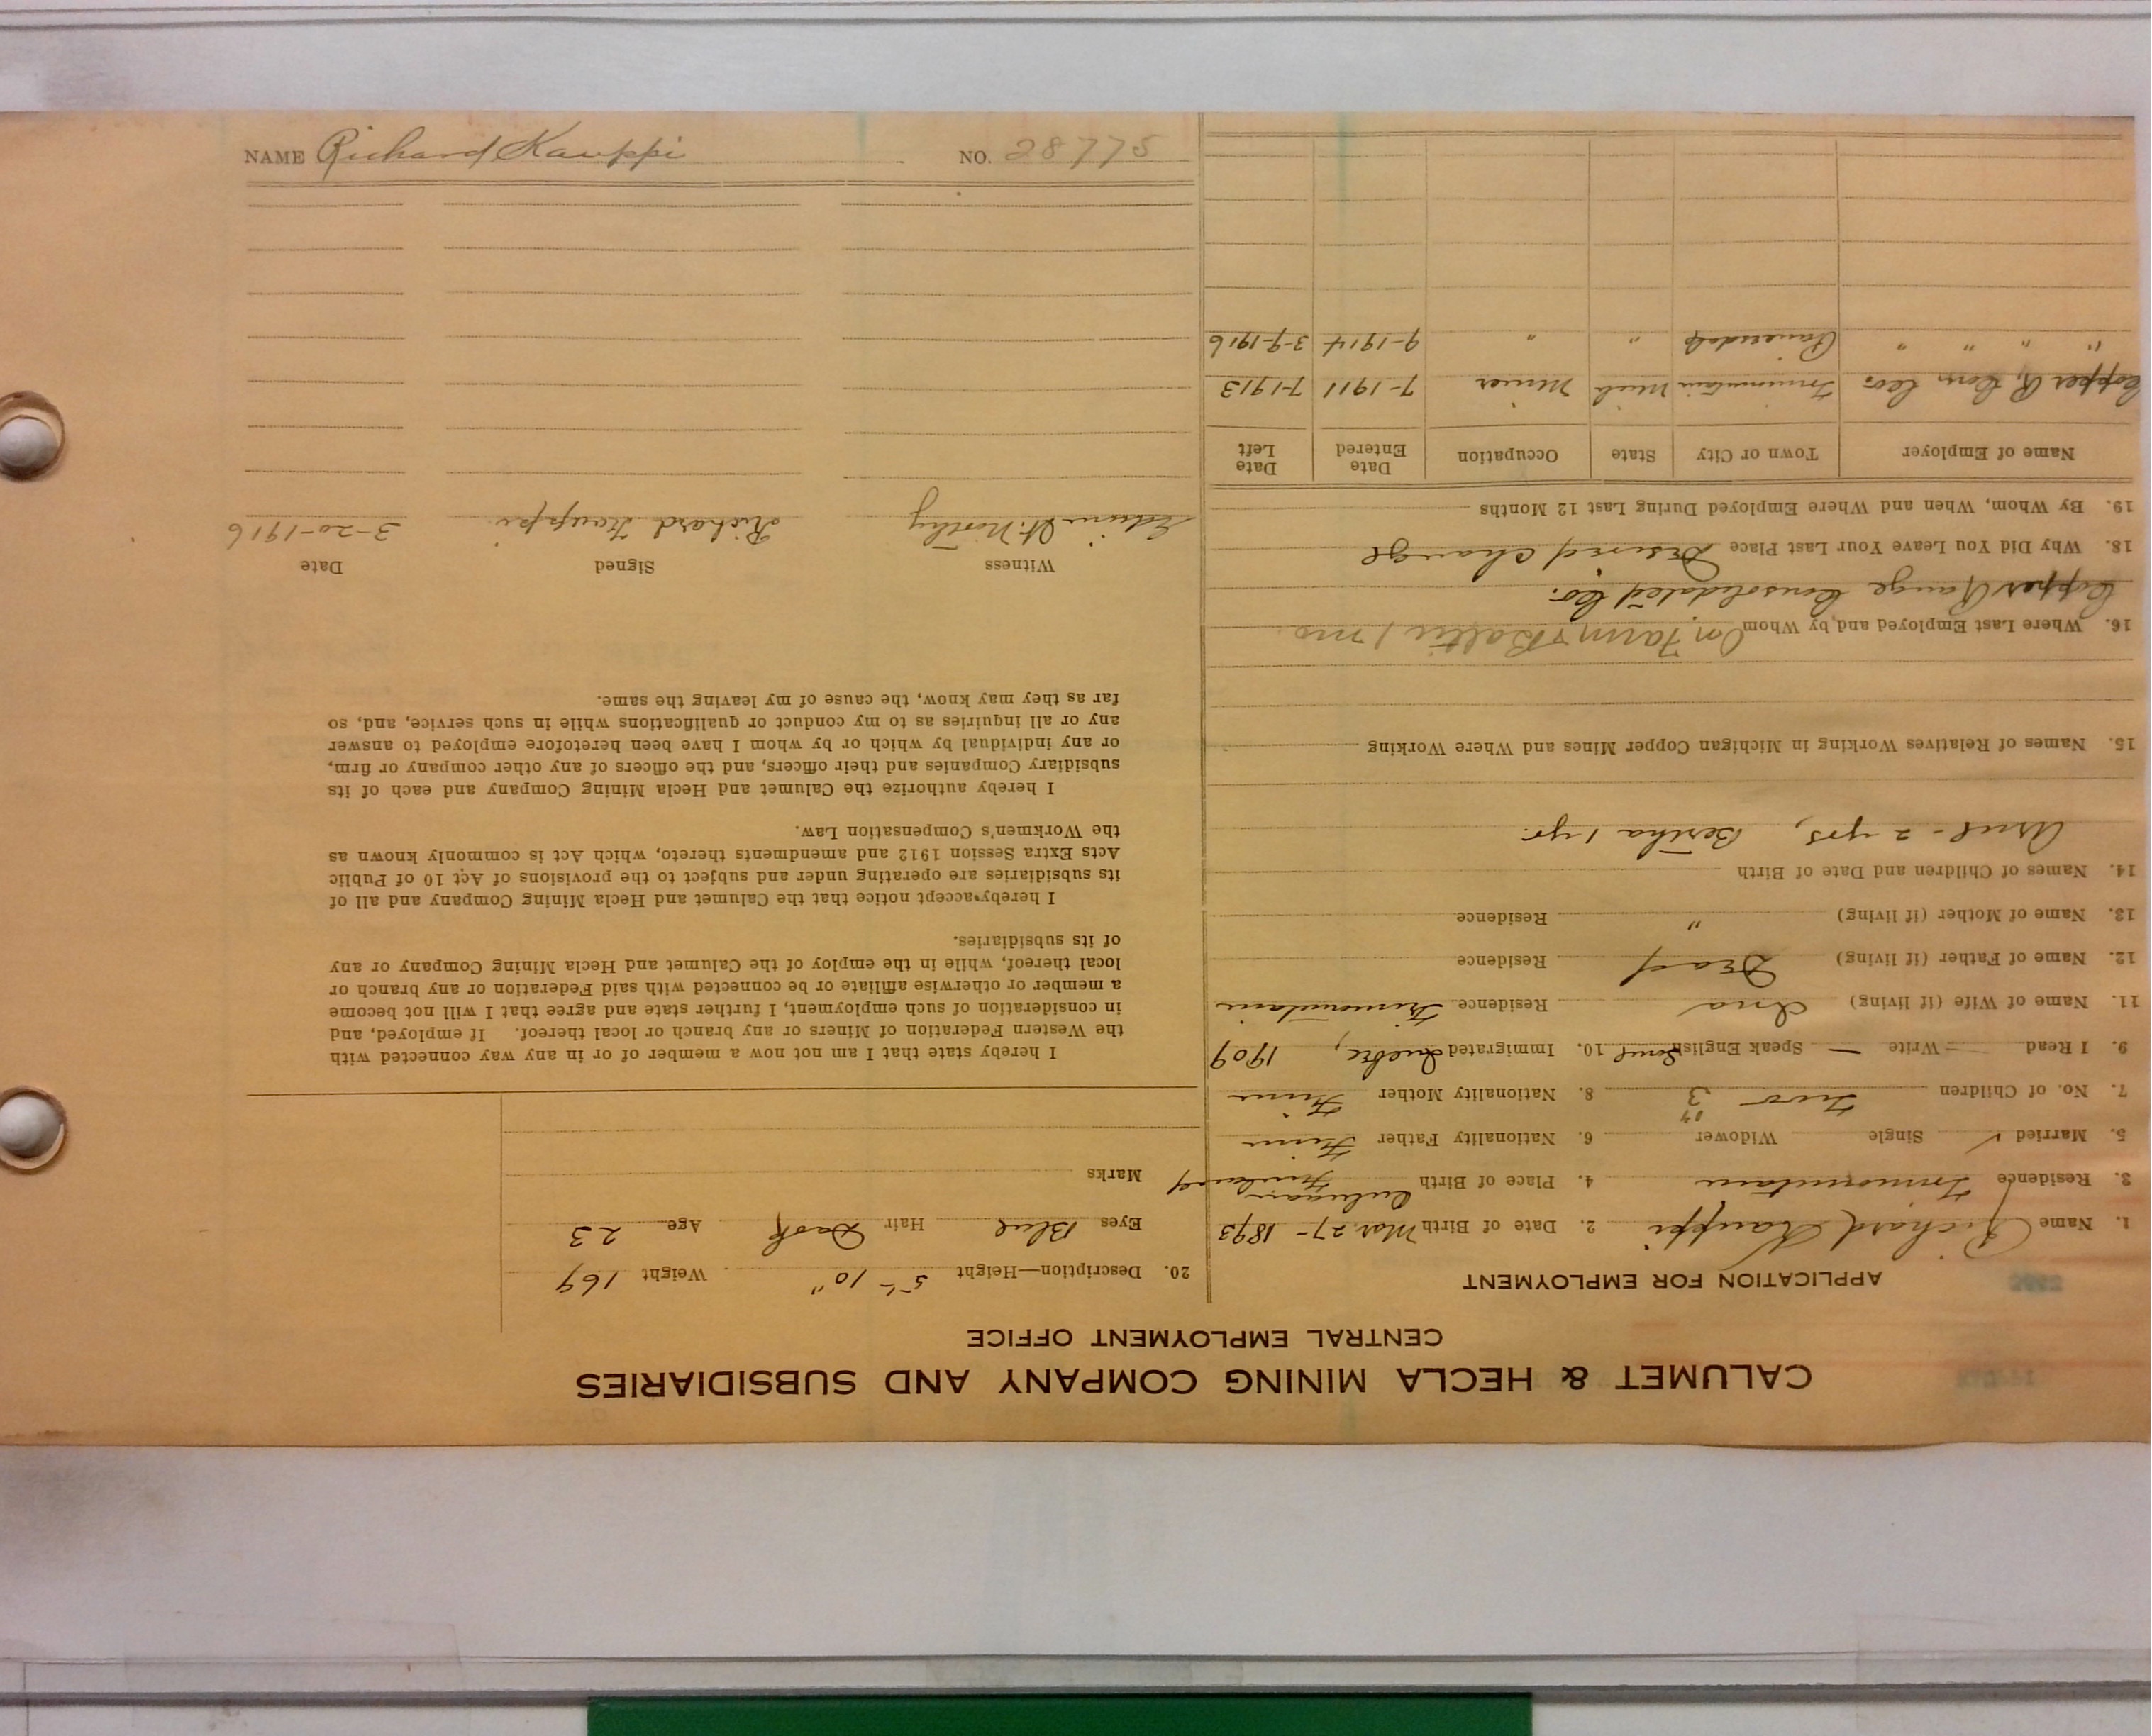 CALUMET & HECLA MINING COMPANY AND SUBSIDIARIES
CENTRAL EMPLOYMENT OFFICE
APPLICATION FOR EMPLOYMENT
1. Name Richard Kauppi 2. Date of Birth Mar. 27 - 1893
3. Residence Trimountain 4. Place of Birth Finland
5. Married ✓ Single Widower 6. Nationality Father Finn
7. No. of Children two 3 8. Nationality Mother Finn
9. I Read — Write — Speak English 10. Immigrated Quebec, 1909
11. Name of Wife (if living) Ina Residence Trimountain
12. Name of Father (if living) Dead Residence
13. Name of Mother (if living) " Residence
14. Names of Children and Date of Birth
- 2 yrs, Bertha 1 yr.
15. Names of Relatives Working in Michigan Copper Mines and Where Working
16. Where Last Employed and by Whom On Farm & Baltic 1 mo
Copper Range Consolidated Co.
18. Why Did You Leave Your Last Place Desired change
19. By Whom, When and Where Employed During Last 12 Months
Name of Employer Town or City State Occupation Date Entered Date Left
Copper R. Con Co. Trimountain Mich Miner 7-1911 7-1913
" " " " Painesdale " " 9-1914 3-9-1916
20. Description—Height 5' 10" Weight 169
Eyes Blue Hair Dark Age 23
Marks
I hereby state that I am not now a member of or in any way connected with
the Western Federation of Miners or any branch or local thereof. If employed, and
in consideration of such employment, I further state and agree that I will not become
a member or otherwise affiliate or be connected with said Federation or any branch or
local thereof, while in the employ of the Calumet and Hecla Mining Company or any
of its subsidiaries.
I hereby accept notice that the Calumet and Hecla Mining Company and all of
its subsidiaries are operating under and subject to the provisions of Act 10 of Public
Acts Extra Session 1912 and amendments thereto, which Act is commonly known as
the Workmen's Compensation Law.
I hereby authorize the Calumet and Hecla Mining Company and each of its
subsidiary Companies and their officers, and the officers of any other company or firm,
or any individual by which or by whom I have been heretofore employed to answer
any or all inquiries as to my conduct or qualifications while in such service, and, so
far as they may know, the cause of my leaving the same.
Witness Signed Date
Edwin Northey Richard Kauppi 3-20-1916
NAME Richard Kauppi NO. 28775